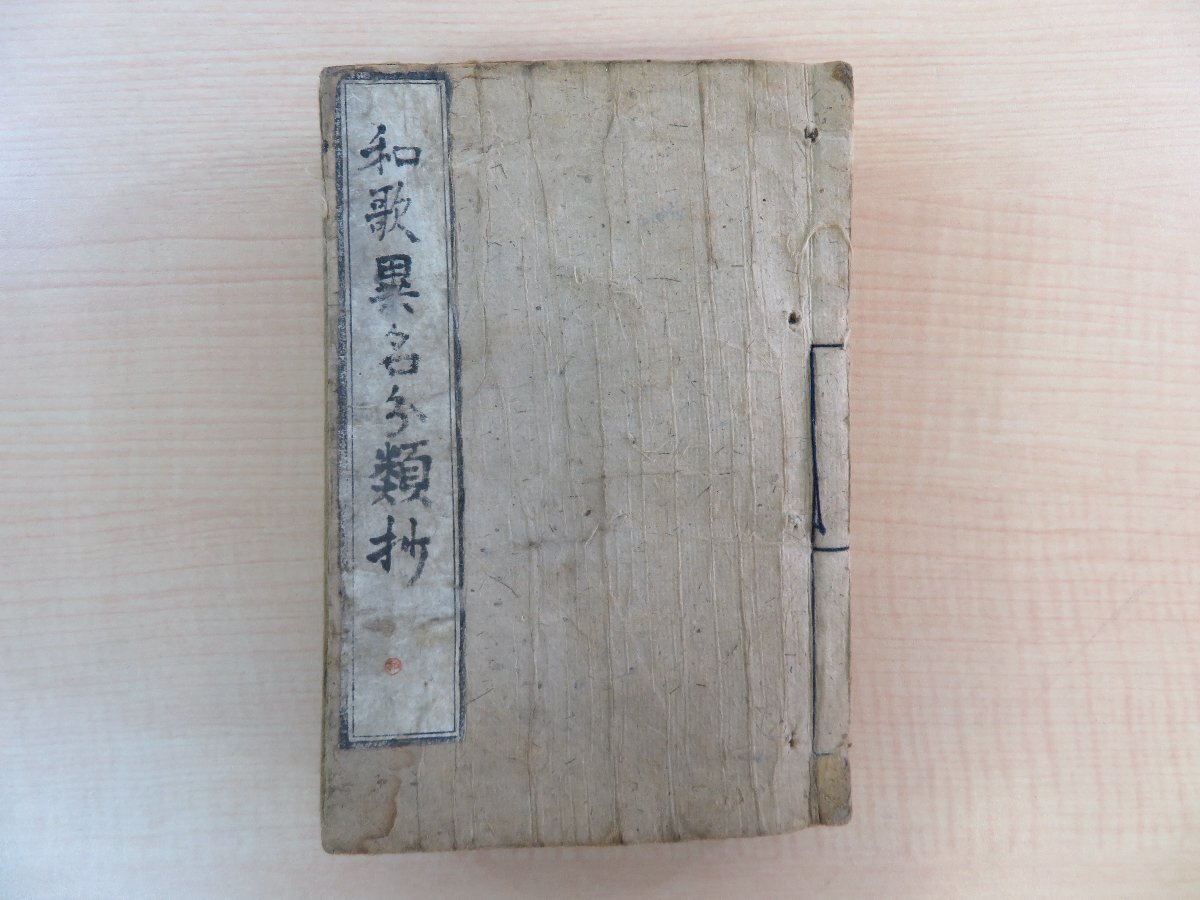 和歌異名分類抄